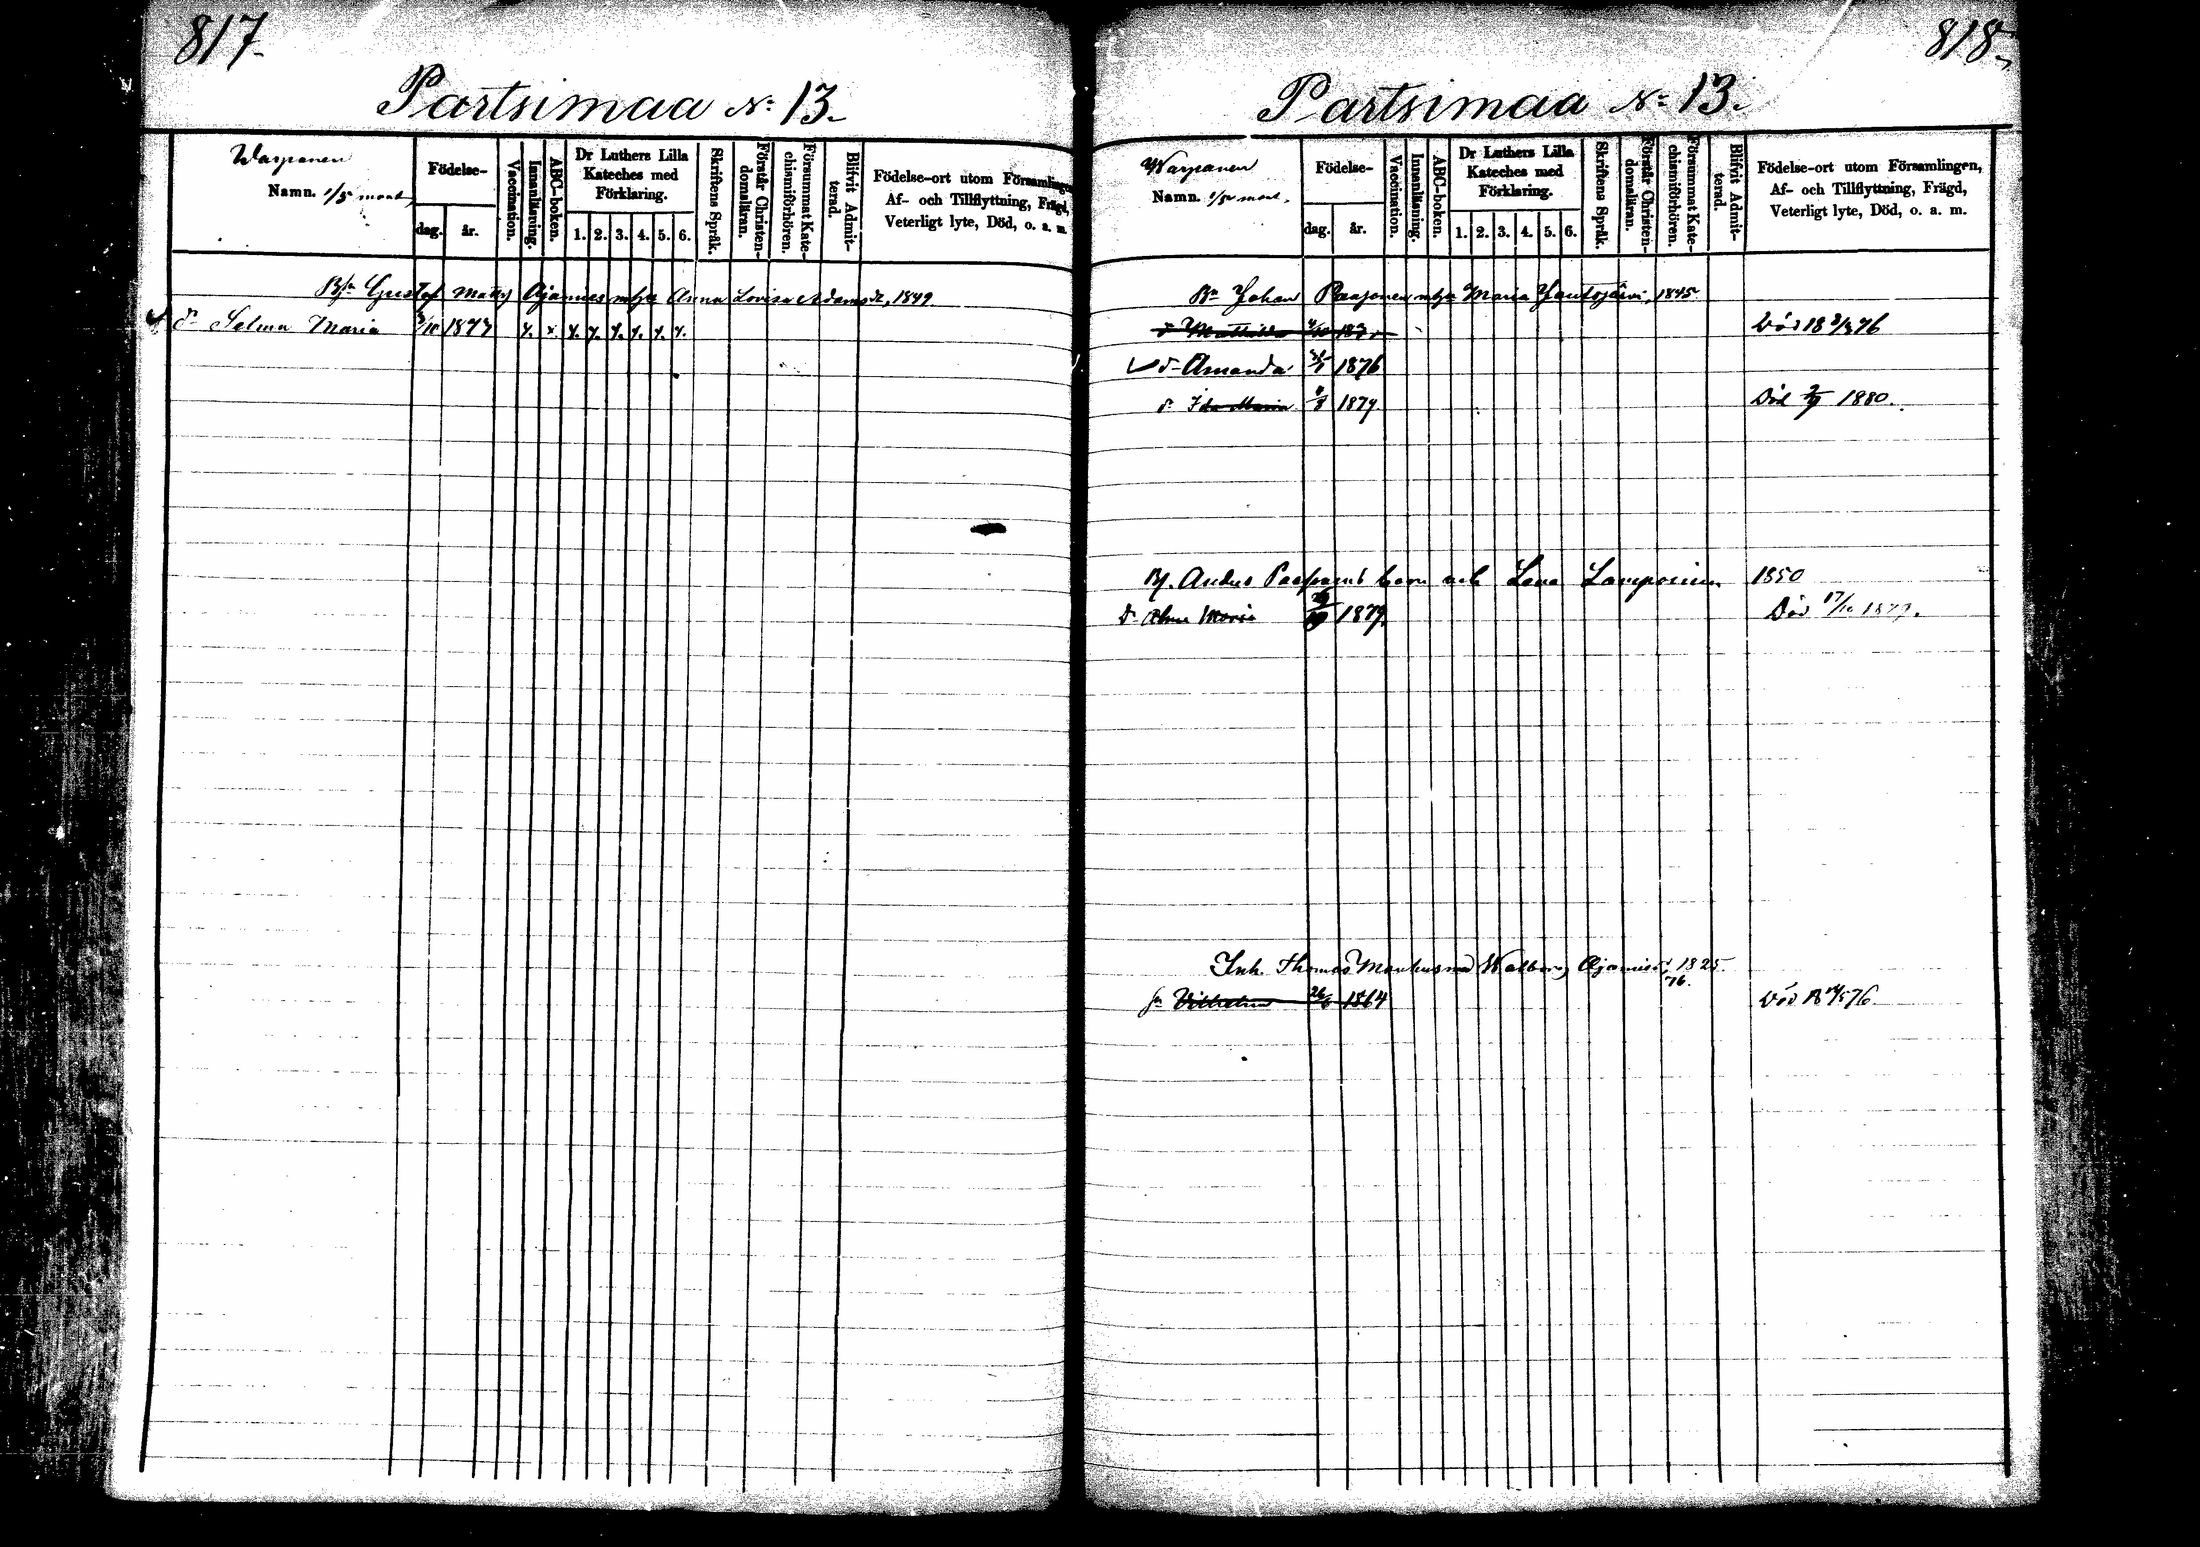 817
Partsimaa No 13.
Warpanen
Namn. 1/5 mant.
Födelse-
dag. år.
Vaccination.
Innanläsning.
ABC-boken.
Dr Luthers Lilla Kateches med Förklaring.
1. 2. 3. 4. 5. 6.
Skriftens Språk.
Förstår Christen-domsläran.
Försummat Kate-chismiförhören.
Blifvit Admit-terad.
Födelse-ort utom Församlingen,
Af- och Tillflyttning, Frägd,
Veterligt lyte, Död, o. a. m.
Gustof Matts Ajanies Anna Lovisa Adamsdr, 1849
dr Selma Maria 1877
818
Partsimaa No 13.
Warpanen
Namn. 1/5 mant.
Födelse-
dag. år.
Vaccination.
Innanläsning.
ABC-boken.
Dr Luthers Lilla Kateches med Förklaring.
1. 2. 3. 4. 5. 6.
Skriftens Språk.
Förstår Christen-domsläran.
Försummat Kate-chismiförhören.
Blifvit Admit-terad.
Födelse-ort utom Församlingen,
Af- och Tillflyttning, Frägd,
Veterligt lyte, Död, o. a. m.
Bn Johan Paajonen Maria 1845
Död 76
dr Amanda 1876
dr Ida Maria 1879. Död 1880.
Anders barn och Lena 1850
dr Maria 1879. Död 17/10 1879.
Inh. Thomas Walborg 1825.
76.
sn Vilhelm 26 1864 Död 76.